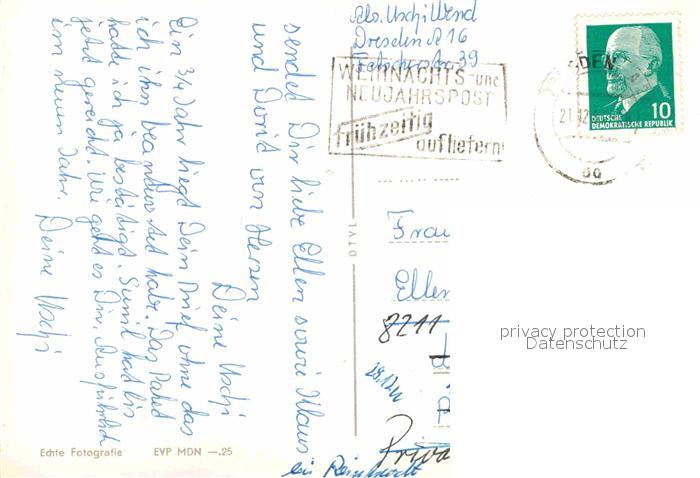 Abs. Uschi Wend
Dresden A 16
Fetscherstr. 39
WEIHNACHTS- und
NEUJAHRSPOST
frühzeitig
aufliefern
DRESDEN
21.12
10
DEUTSCHE
DEMOKRATISCHE REPUBLIK
sendet Dir liebe Ellen sowie Klaus
und Dorit von Herzen
Deine Uschi
Ein 3/4 Jahr liegt Dein Brief ohne das
ich ihn beantwortet habe. Das Paket
hatte ich ja bestätigt. Somit hat bis
jetzt gereicht. Wie geht es Dir. Ausführlich
im neuen Jahr. Deine Uschi
DTVL
Frau
Ellen
8211
28.12
Priva
bei Reinhardt
Echte Fotografie EVP MDN —.25
privacy protection
Datenschutz